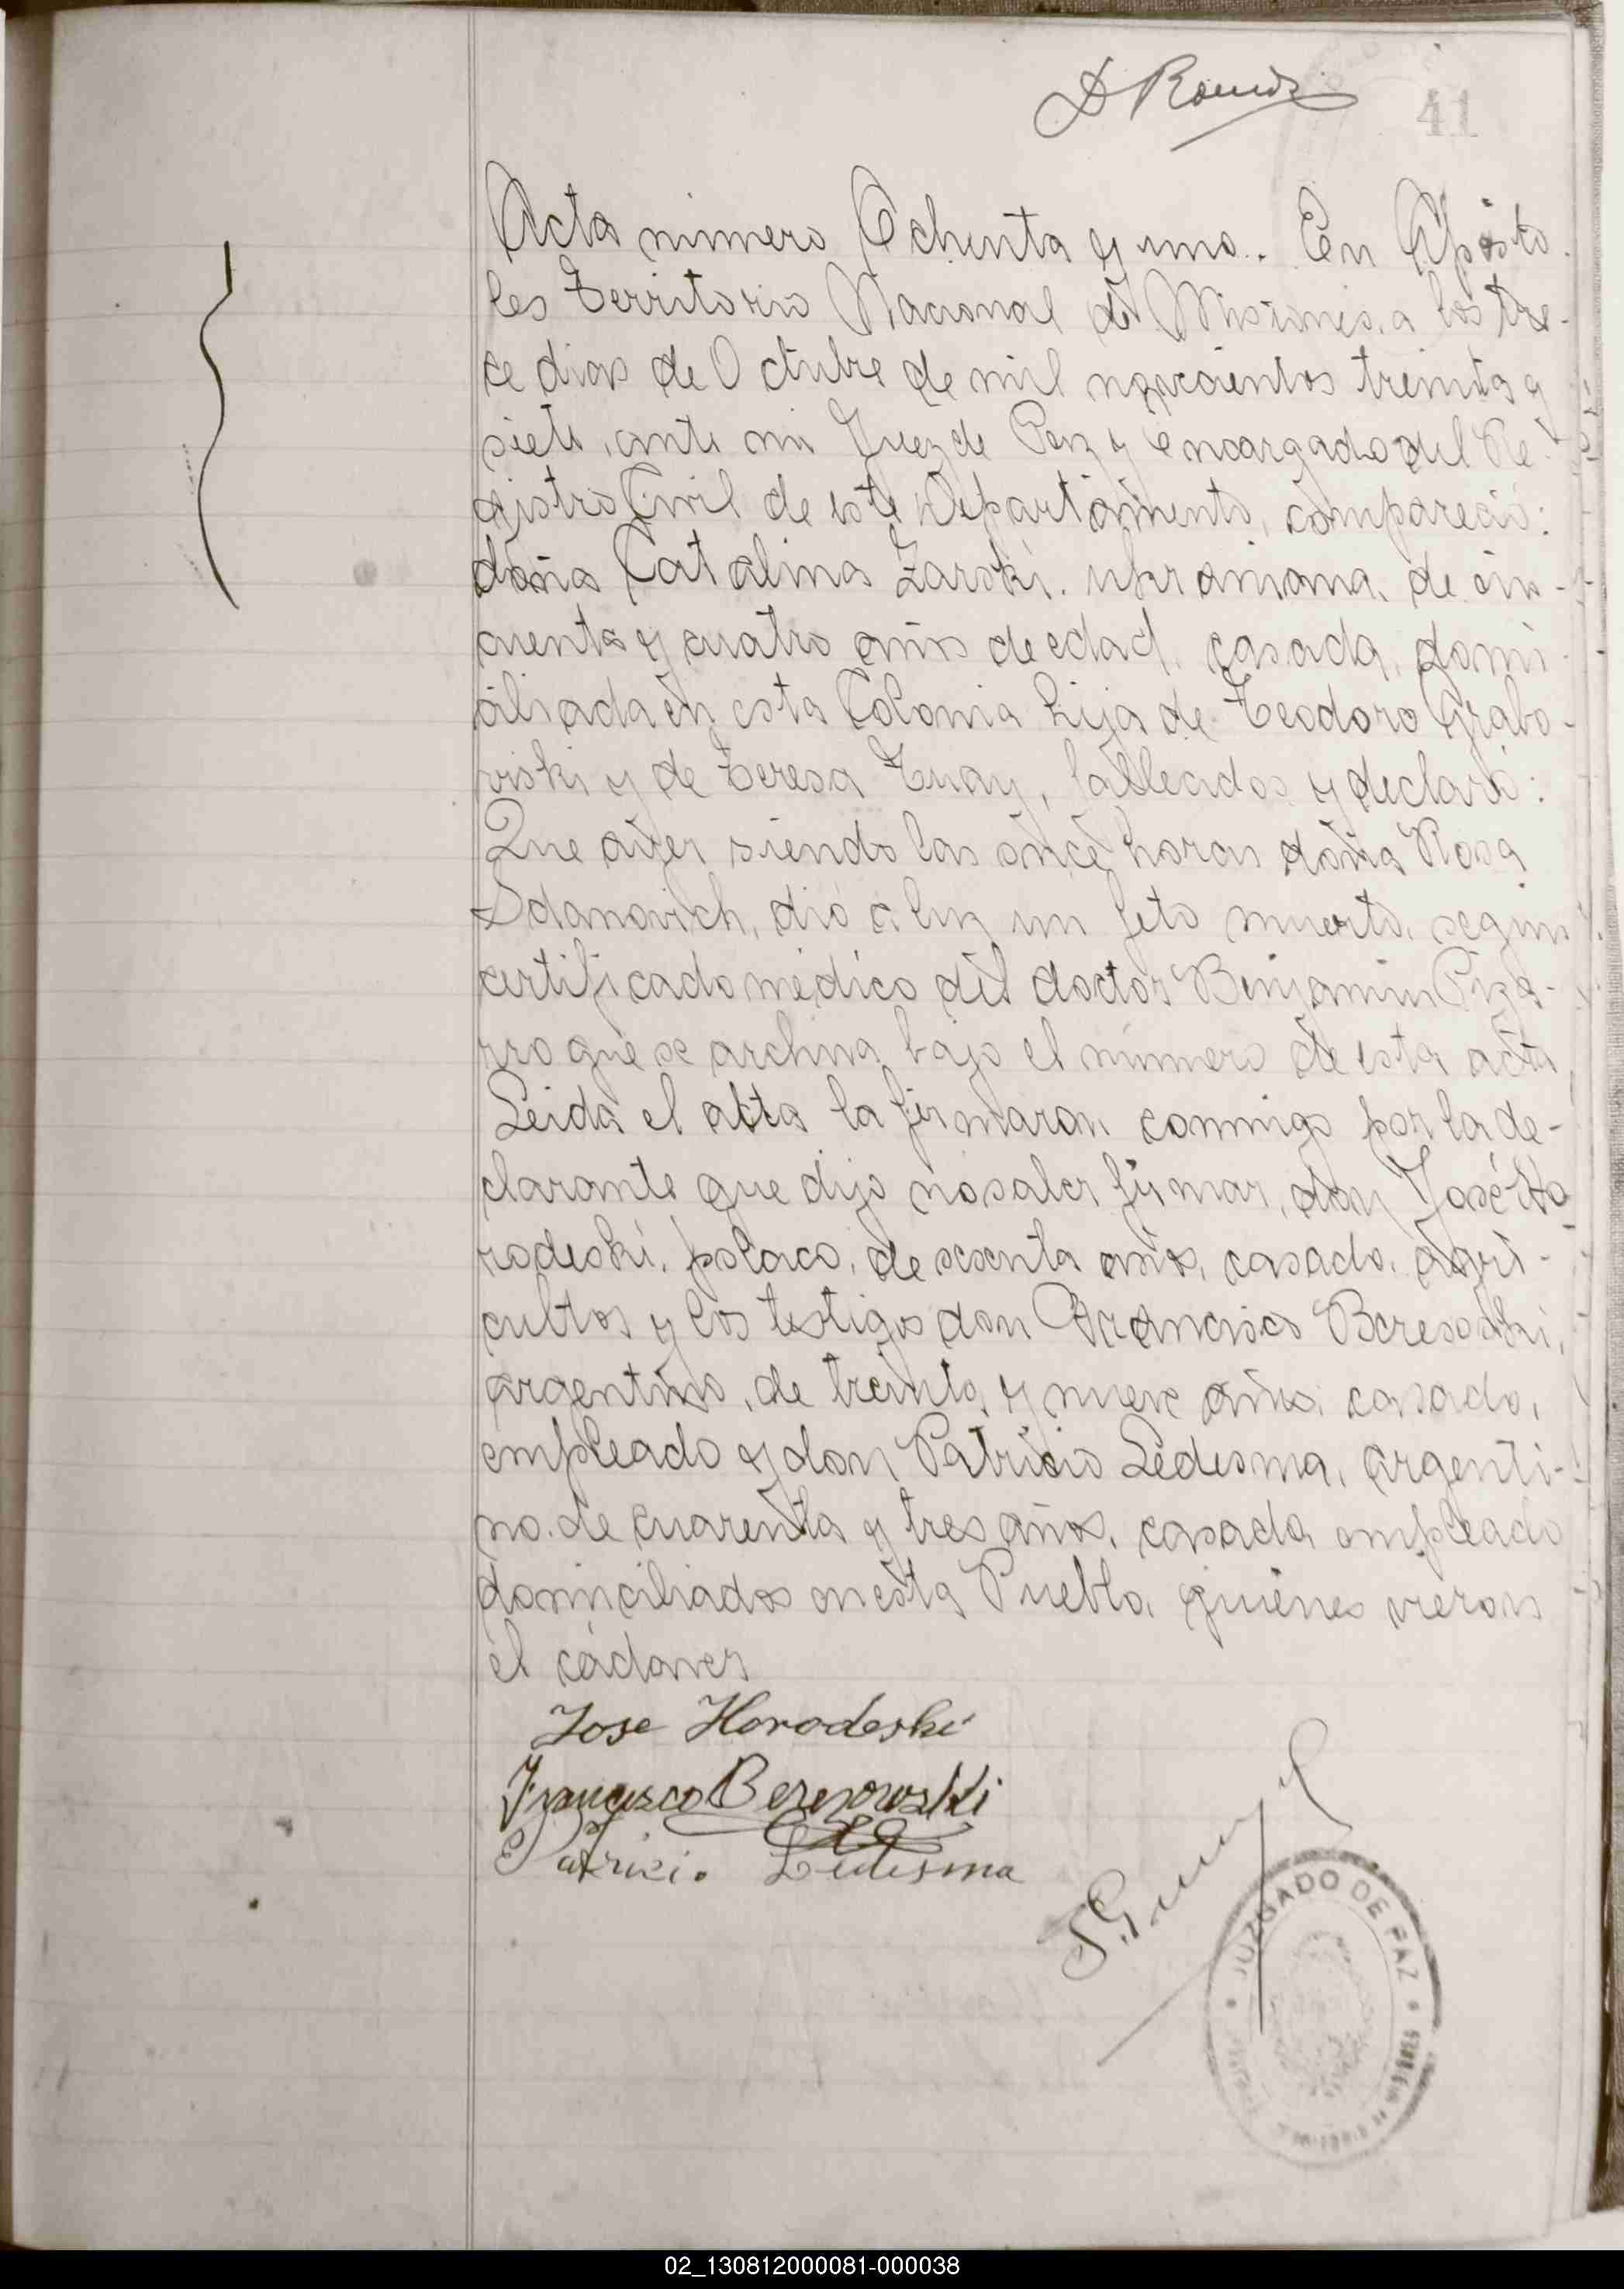 41
Acta número Ochenta y uno. En Apósto-
les Territorio Nacional de Misiones, a los tre-
ce dias de Octubre de mil novecientos treinta y
siete, ante mi Juez de Paz y encargado del Re-
gistro Civil de este Departamento, compareció:
doña Catalina Zarski, ukraniana, de cin-
cuenta y cuatro años de edad, casada, domi-
ciliada en esta Colonia hija de Teodoro Grabo-
viski y de Teresa , fallecidos y declaró:
Que ayer siendo las once horas doña Rosa
Sdanovich, dió a luz un feto muerto, según
certificado médico del doctor Benjamin Piza-
rro que se archiva bajo el número de esta acta
Leida el acta la firmaron conmigo por la de-
clarante que dijo no saber firmar, don José Ho
rodeski, polaco, de sesenta años, casado, agri-
cultor y los testigos don Francisco Beresoski,
argentino, de treinta y nueve años, casado,
empleado y don Patricio Ledesma, argenti-
no. de cuarenta y tres años, casado, empleado
domiciliados en esta Pueblo, quienes vieron
el cádaver
Jose Horodeski
Francisco Berezowski
Patricio Ledesma
JUZGADO DE PAZ
02_130812000081-000038